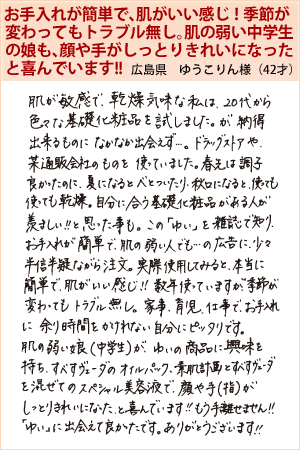 お手入れが簡単で、肌がいい感じ！季節が
変わってもトラブル無し。肌の弱い中学生
の娘も、顔や手がしっとりきれいになった
と喜んでいます!! 広島県 ゆうこりん様（42才）
肌が敏感で、乾燥気味な私は、20代から
色々な基礎化粧品を試しました。が納得
出来るものに なかなか出会えず…。ドラッグストアや、
某通販会社のものを 使っていました。春先は調子
良かったのに、夏になると べとついたり、秋口になると、使っても
使っても乾燥。自分に合う基礎化粧品がある人が
羨ましい!!と思った事も。この「ゆい」を雑誌で知り、
お手入れが簡単で、肌の弱い人でも…の広告に、少々
半信半疑ながら注文。実際使用してみると、本当に
簡単で、肌がいい感じ!! 数年使っていますが季節が
変わっても トラブル無し。家事、育児、仕事で、お手入れ
に 余り時間をかけれない自分にピッタリです。
肌の弱い娘(中学生)が、ゆいの商品に興味を
持ち、すべすヴェーダのオイルパック、素肌計画とすべすヴェーダ
を混ぜてのスペシャル美容液で、顔や手(指)が
しっとりきれいになった、と喜んでいます!! もう手離せません!!
「ゆい」に出会えて良かったです。ありがとうございます!!